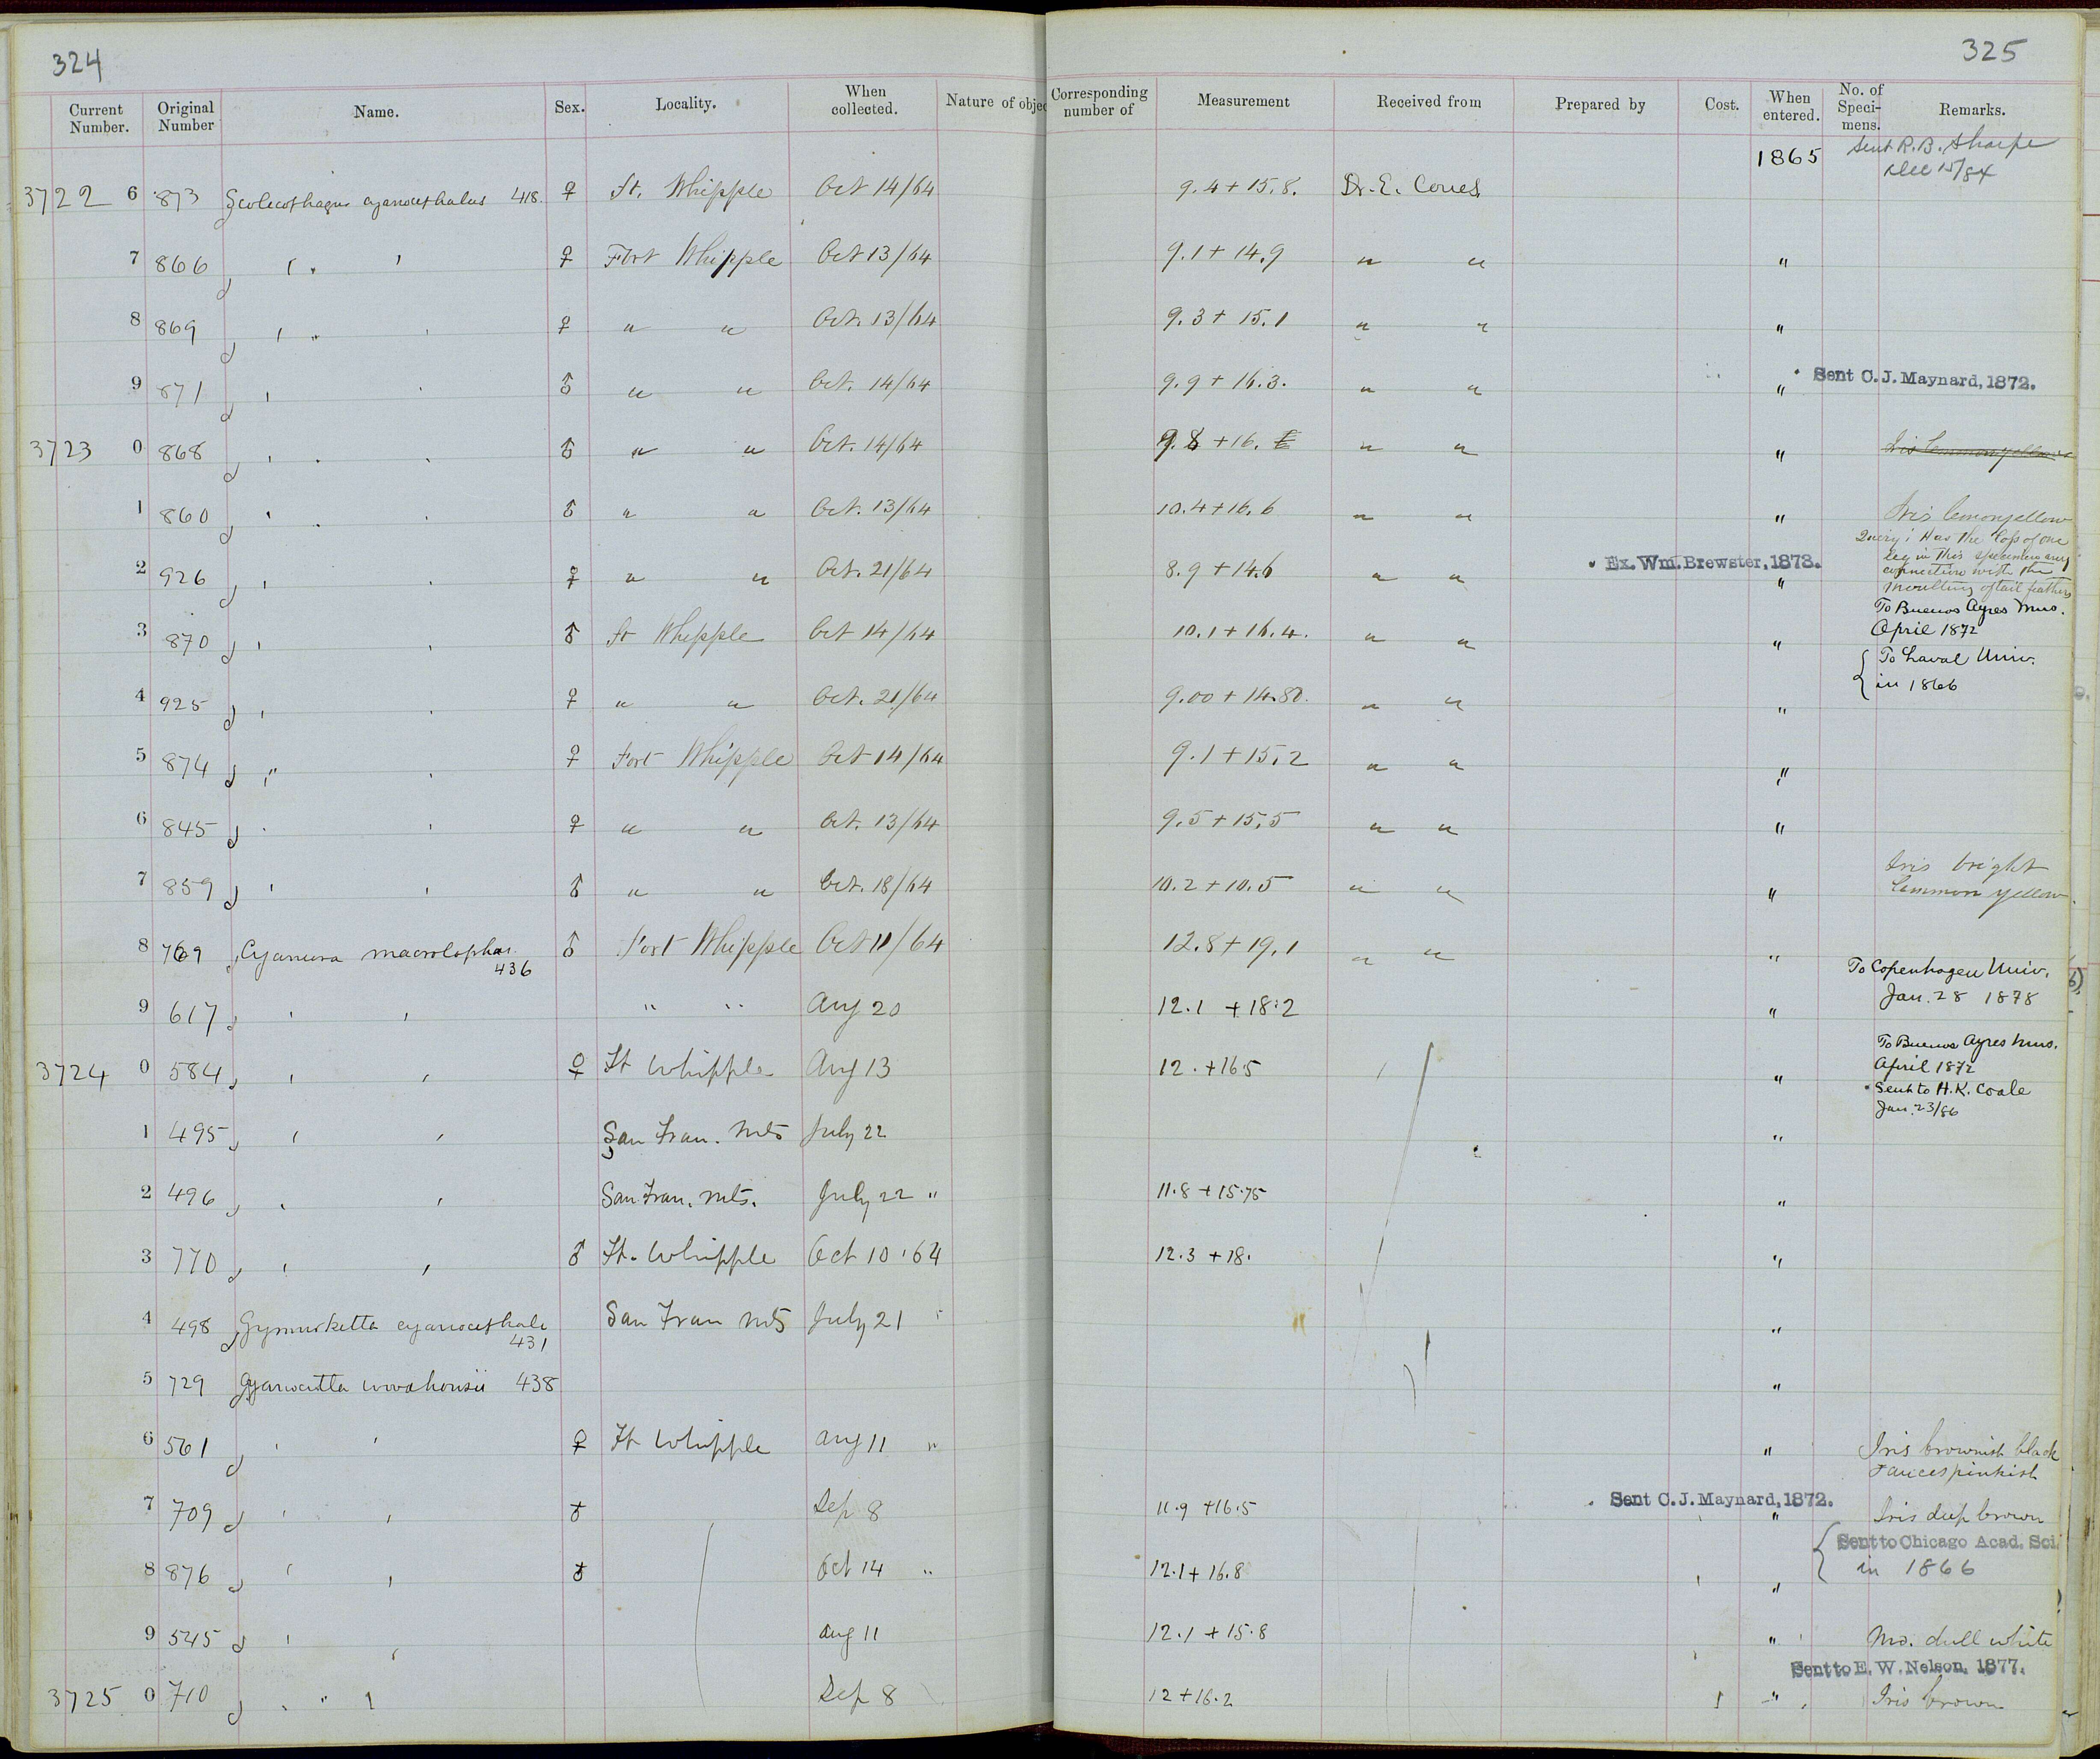 324
325
Current Number. Original Number Name. Sex. Locality. When collected. Nature of objec Corresponding number of Measurement Received from Prepared by Cost. When entered. No. of Speci-mens. Remarks.
1865 Sent R. B. Sharpe
Dec 15/84
3722 6 873 Scolecophagus cyanocephalus 418. ♀ Ft. Whipple Oct 14/64 9.4 + 15.8. Dr. E. Coues
7 866 ♀ Fort Whipple Oct 13/64 9.1 + 14.9 " " "
8 869 ♀ " " Oct. 13/64 9.3 + 15.1 " " "
9 871 ♂ " " Oct. 14/64 9.9 + 16.3. " " " Sent C. J. Maynard, 1872.
3723 0 868 ♂ " " Oct. 14/64 9.8 + 16. " " " Iris lemon yellow
1 860 ♂ " " Oct. 13/64 10.4 + 16.6 " " " Iris lemon yellow
2 926 ♀ " " Oct. 21/64 8.9 + 14.6 " " Ex. Wm. Brewster, 1873. " Query: Has the loss of one
leg in this specimen any
connection with the
moulting of tail feathers
3 870 ♂ Ft Whipple Oct 14/64 10.1 + 16.4. " " " To Buenos Ayres Mus.
April 1872
4 925 ♀ " " Oct. 21/64 9.00 + 14.80. " " " To Laval Univ.
in 1866
5 874 " ♀ Fort Whipple Oct 14/64 9.1 + 15.2 " " "
6 845 ♀ " " Oct. 13/64 9.5 + 15.5 " " "
7 859 ♂ " " Oct. 18/64 10.2 + 10.5 " " " Iris bright
lemmon yellow.
8 769 Cyanura macrolophas. 436 ♂ Fort Whipple Oct 11/64 12.8 + 19.1 " " "
9 617 " " Aug 20 12.1 + 18.2 " To Copenhagen Univ.
Jan. 28 1878
3724 0 584 ♀ Ft Whipple Aug 13 12. + 16.5 " To Buenos Ayres Mus.
April 1872
1 495 San Fran. Mts July 22 " Sent to H. K. Coale
Jan. 23/86
2 496 San Fran. Mts. July 22 " 11.8 + 15.75 "
3 770 ♂ Ft. Whipple Oct 10. 64 12.3 + 18. "
4 498 Gymnokitta cyanocephala 431 San Fran Mts July 21 "
5 729 Cyanocitta woodhousii 438 "
6 561 ♀ Ft Whipple Aug 11 " " Iris brownish black
Fauces pinkish
7 709 ♂ Sep 8 11.9 + 16.5 Sent C. J. Maynard, 1872. " Iris deep brown
8 876 ♂ Oct 14 " 12.1 + 16.8 " Sent to Chicago Acad. Sci.
in 1866
9 545 Aug 11 12.1 + 15.8 " dull white
Sent to E. W. Nelson, 1877.
3725 0 710 " Sep 8 12 + 16.2 " Iris brown